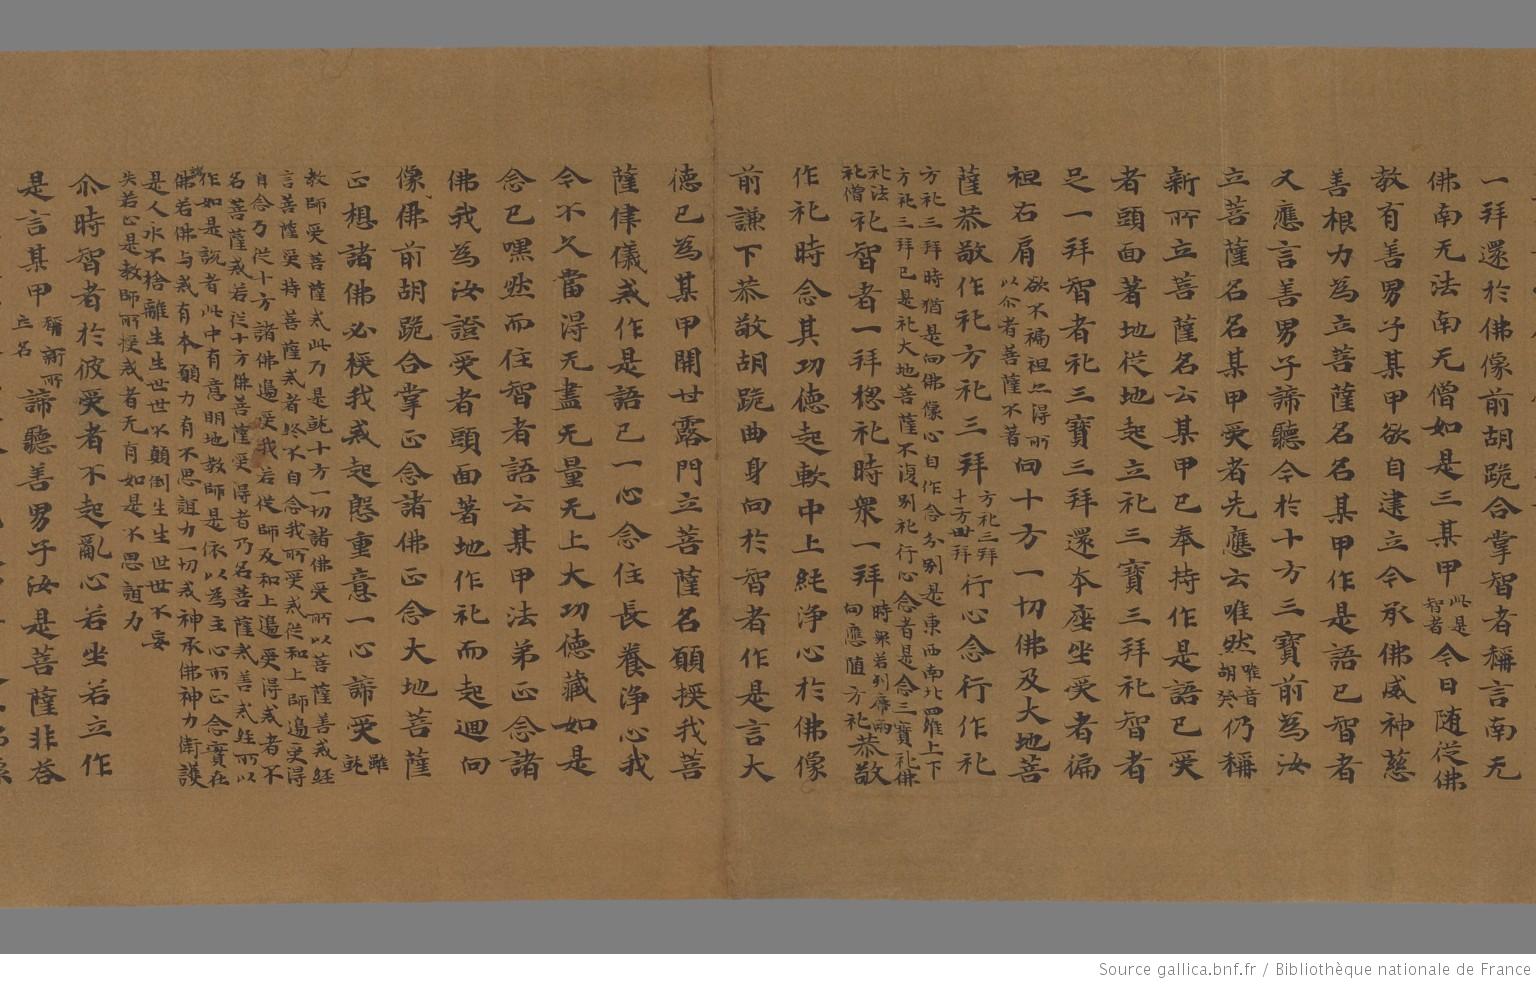 一拜還於佛像前胡跪合掌智者稱言南无
佛南无法南无僧如是三某甲此是智者今日随從佛
教有善男子某甲欲自建立今承佛威神慈
善根力為立菩薩名名某甲作是語已智者
又應言善男子諦聽今於十方三寶前為汝
立菩薩名名某甲受者先應云唯然唯音胡癸仍稱
新所立菩薩名云某甲已奉持作是語已受
者頭面著地從地起立礼三寶三拜礼智者
足一拜智者礼三寶三拜還本座坐受者偏
袒右肩欲不褊袒亦得所以尒者菩薩不著向十方一切佛及大地菩
薩恭敬作礼方礼三拜方礼三拜十方卅拜行心念行作礼
方礼三拜時猶是向佛像心自作念分別是東西南北四維上下
方礼三拜已是礼大地菩薩不復別礼行心念者是念三寶礼佛
礼法礼僧礼智者一拜揔礼時衆一拜時衆若列席兩向應随方礼恭敬
作礼時念其功德起軟中上純淨心於佛像
前謙下恭敬胡跪曲身向於智者作是言大
德已為某甲開甘露門立菩薩名願授我菩
薩律儀戒作是語已一心念住長養淨心我
今不久當得无盡无量无上大功德藏如是
念已嘿然而住智者語云某甲法弟正念諸
佛我為汝證受者頭面著地作礼而起迴向
像佛前胡跪合掌正念諸佛正念大地菩薩
正想諸佛必授我戒起慇重意一心諦受雖託
教師受菩薩戒此乃是託十方一切諸佛受所以菩薩善戒經
言菩薩受持菩薩戒者終不自念我所受戒從和上師邊受得
自念乃從十方諸佛邊受我若從師及和上邊受得戒者不
名菩薩戒若從十方佛菩薩受得者乃名菩薩戒善戒經所以
作如是說者此中有意明地教師是依以為主心所正念實在
諸佛若佛与戒有本願力有不思誼力一切戒神承佛神力衛護
是人永不捨離生生世世不顛倒生生世世不妄
失若心是教師所授戒者无有如是不思誼力
尒時智者於彼受者不起亂心若坐若立作
是言某甲稱新所立名諦聽善男子汝是菩薩非答
Source gallica.bnf.fr / Bibliothèque nationale de France